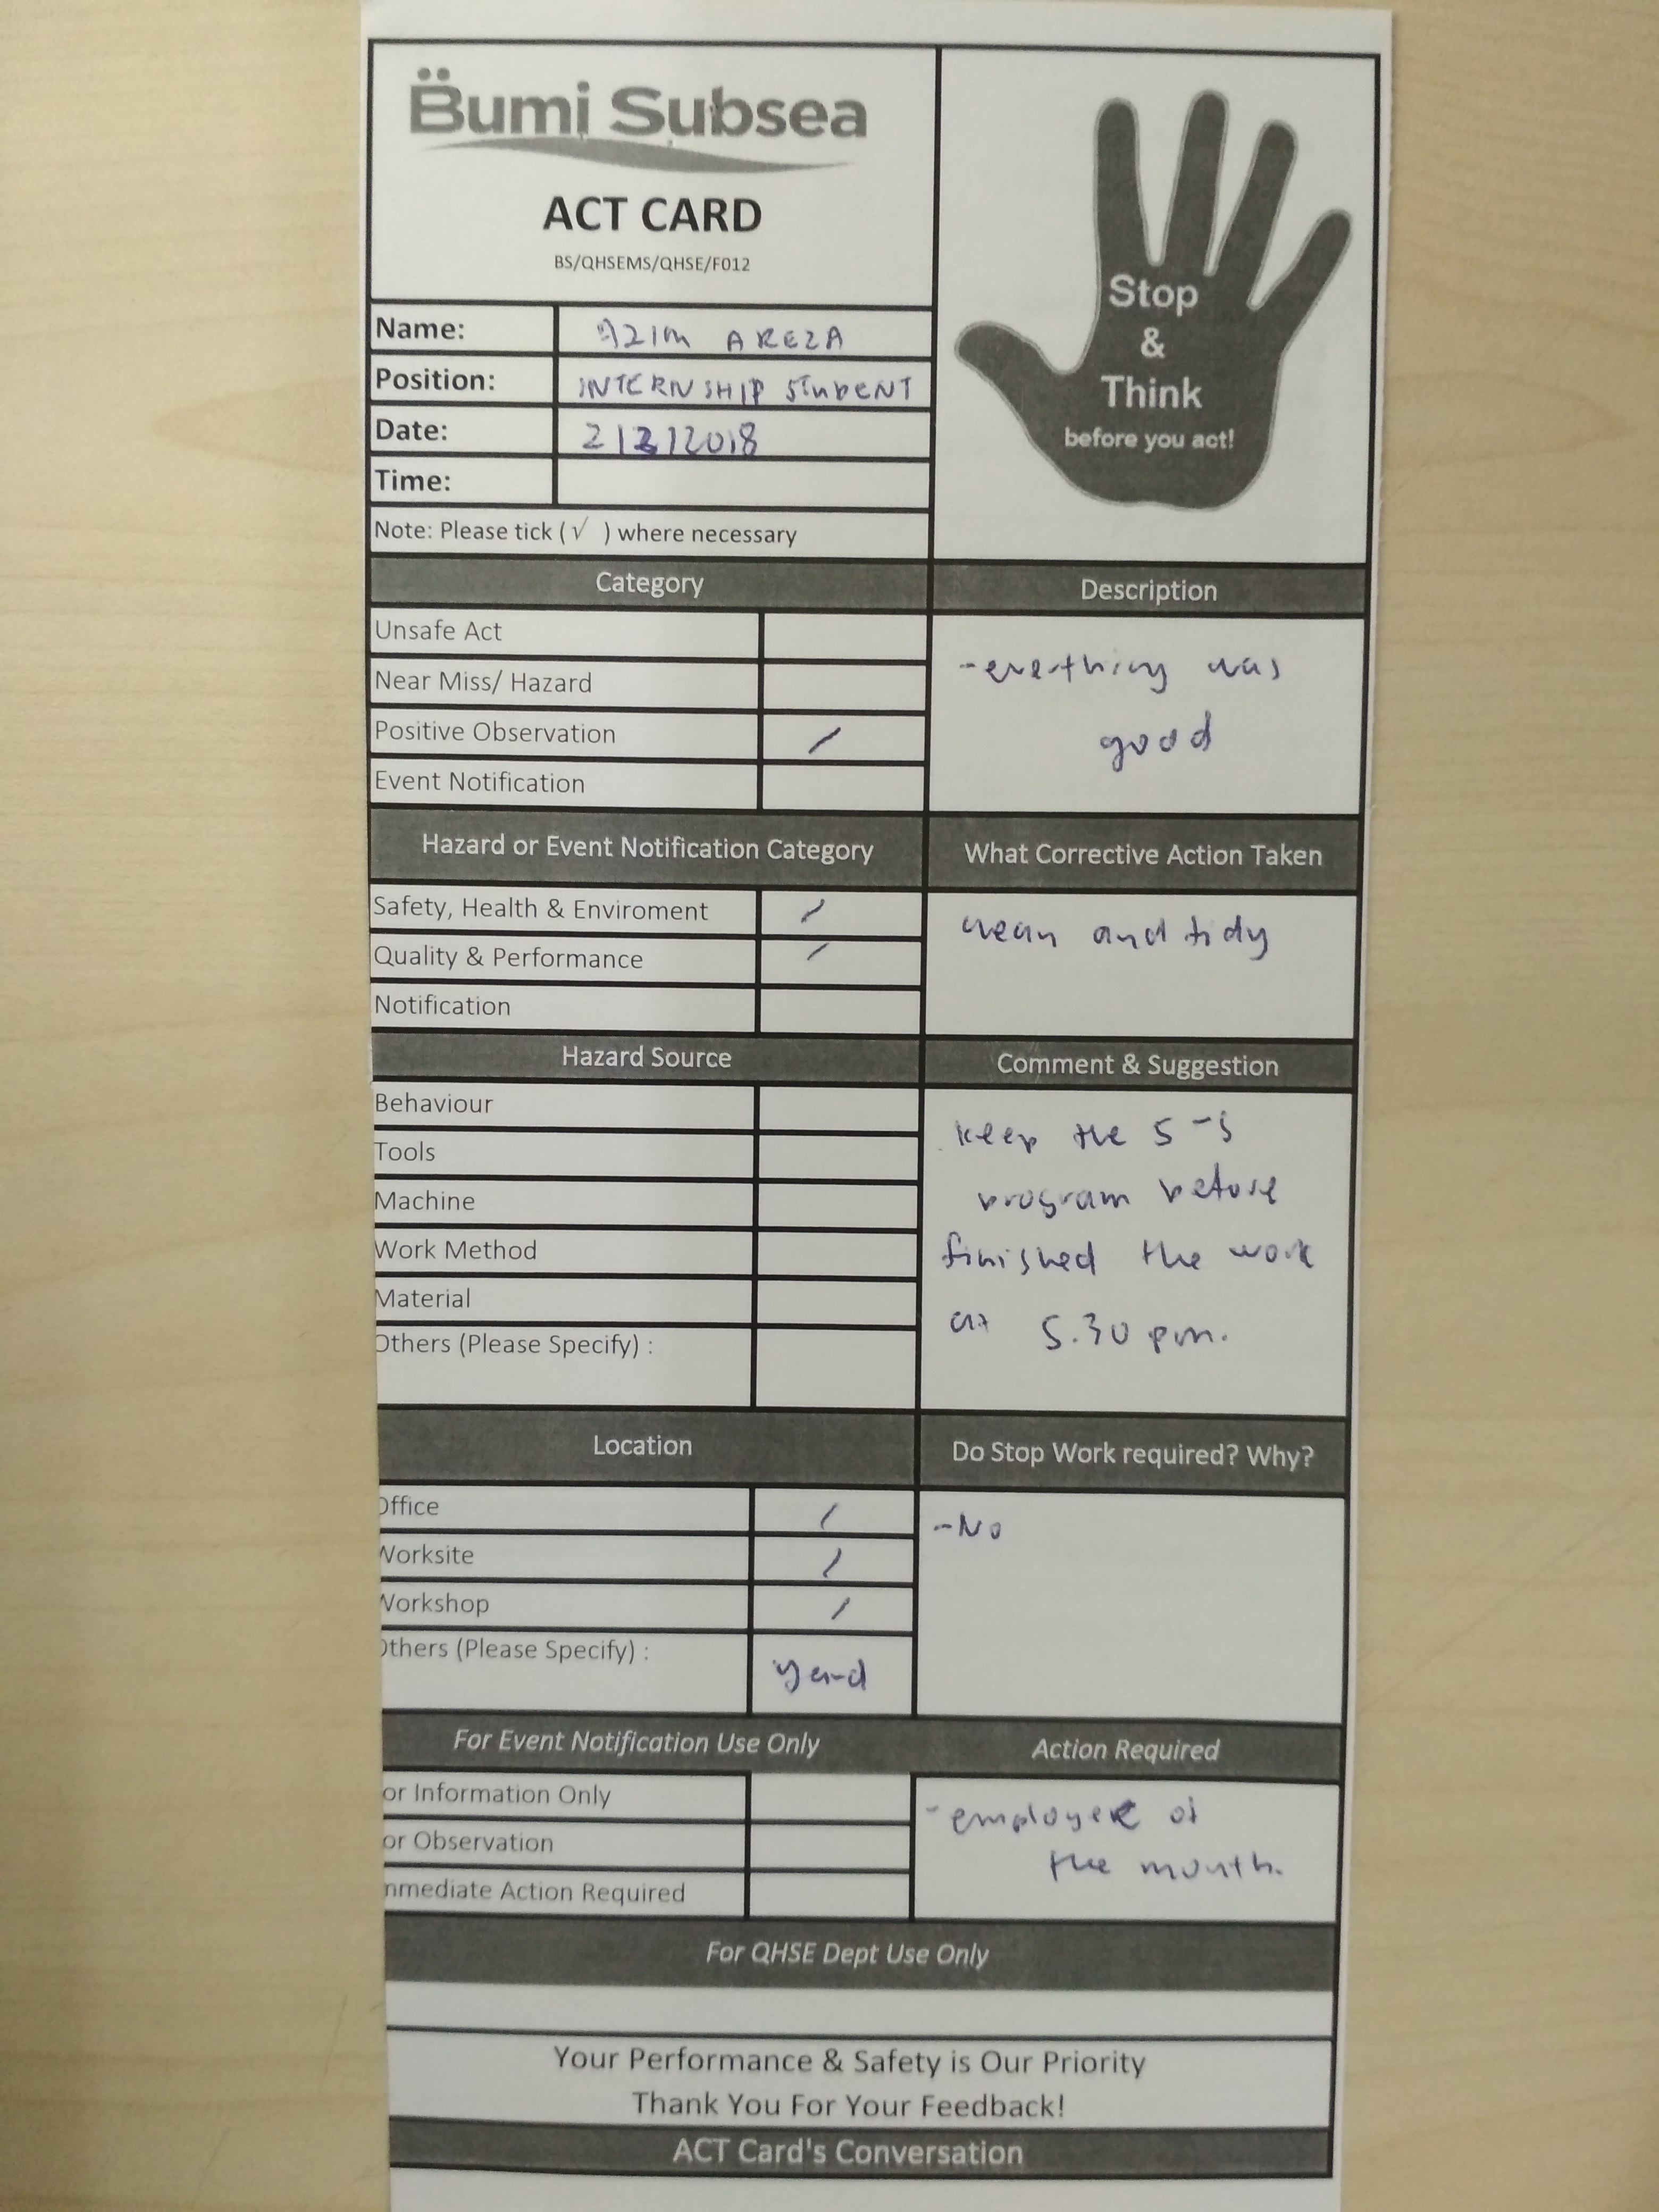 Bumi Subsea
ACT CARD
BS/QHSEMS/QHSE/F012
Stop
&
Think
before you act!
Name: AZIM AREZA
Position: INTERNSHIP STUDENT
Date: 2/2/2018
Time:
Note: Please tick (√ ) where necessary
Category
Unsafe Act
Near Miss/ Hazard
Positive Observation /
Event Notification
Description
-everthing was
good
Hazard or Event Notification Category
Safety, Health & Enviroment /
Quality & Performance /
Notification
What Corrective Action Taken
clean and tidy
Hazard Source
Behaviour
Tools
Machine
Work Method
Material
Others (Please Specify) :
Comment & Suggestion
keep the 5-s
program before
finished the work
at 5.30 pm.
Location
Office /
Worksite /
Workshop /
Others (Please Specify) : yard
Do Stop Work required? Why?
-No
For Event Notification Use Only
or Information Only
or Observation
mmediate Action Required
Action Required
-employee of
the month.
For QHSE Dept Use Only
Your Performance & Safety is Our Priority
Thank You For Your Feedback!
ACT Card's Conversation